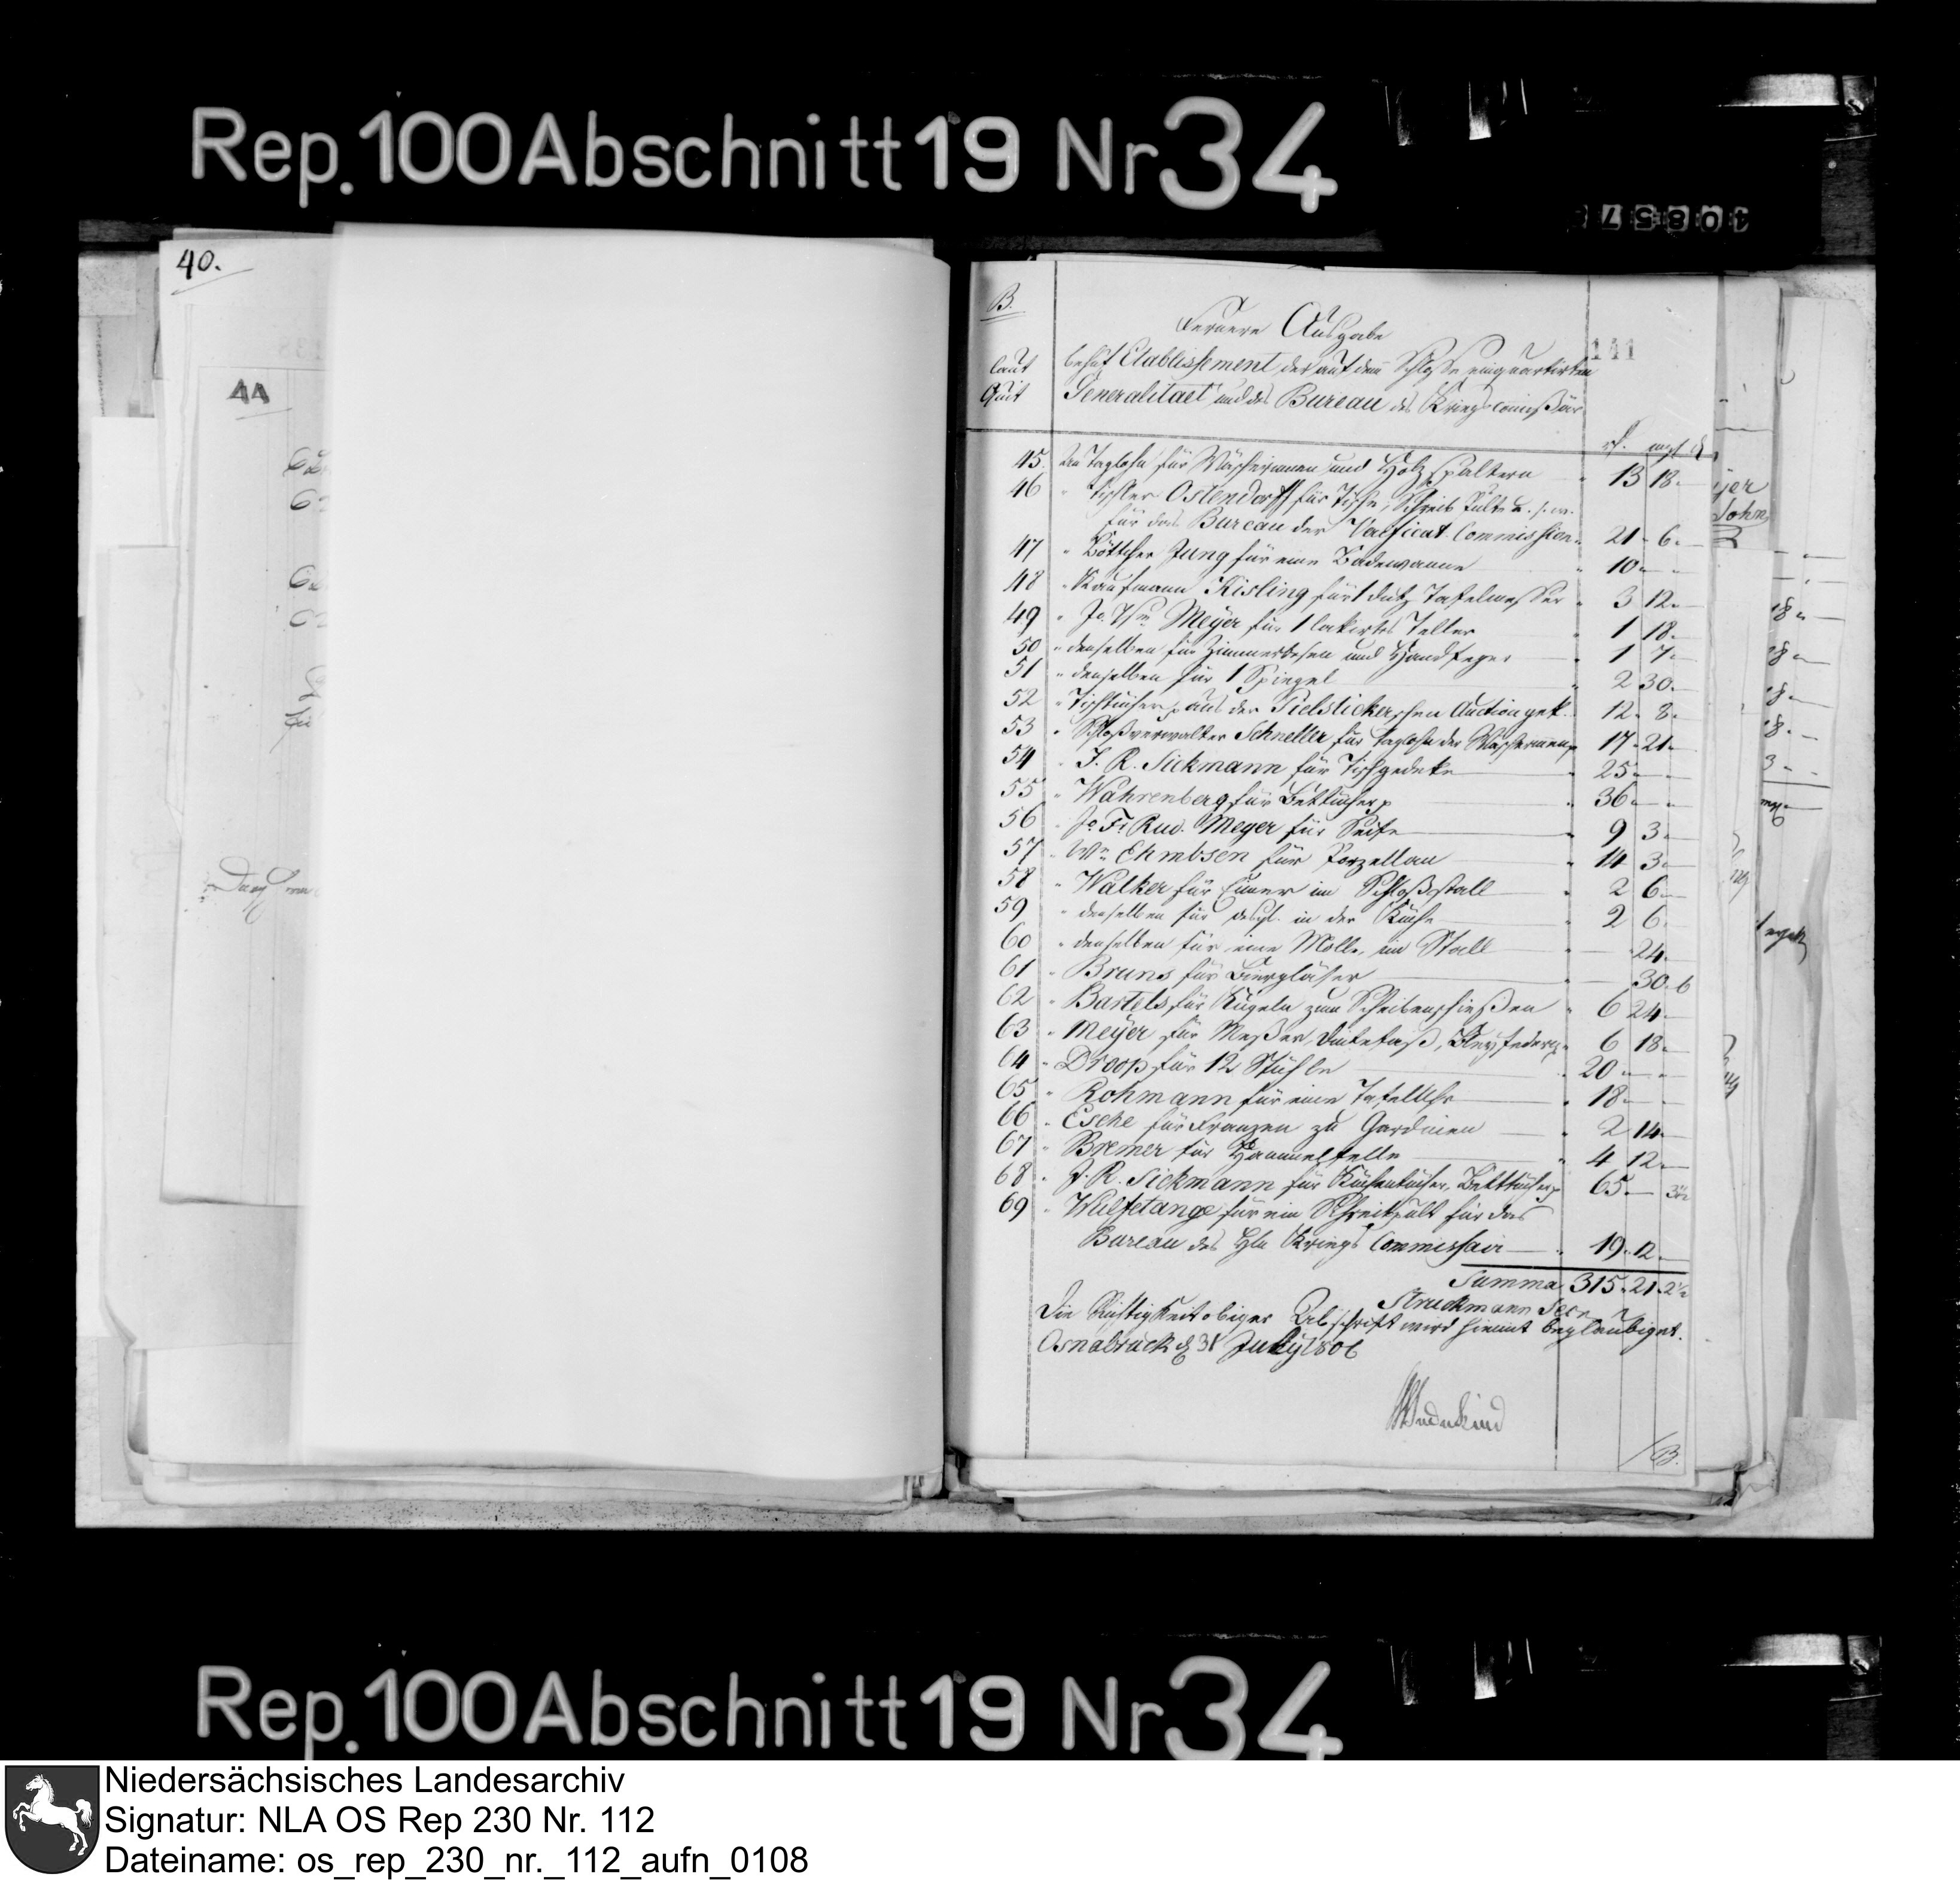 Rep. 100 Abschnitt 19 Nr 34
40857
40.
44
B.
141
Fernere Ausgabe
laut behuf Etablissement der auf dem Schlosse einquartirten
Quit Generalitaet und des Bureau des Kriegscommißärs
rt. mgl d
45. An Taglohn für Wäscherinnen und Holzspaltern 13 18
46 " Tischler Ostendorff für Tische, Schreib Pulte u. s. w.
für das Bureau der Commission 21 6
47 " Böttcher Jung für eine Badewanne 10
48 " Kaufmann Kisling für 1 dutz Tafelmesser 3 12
49 " Meyer für 1 lakirtes Teller 1 18
50 " denselben für Zimmerbesen und Handfeger 1 7
51 " denselben für 1 Spiegel 2 30
52 " Tischtücher aus der Pielstickerschen Auction gek. 12 8
53 " Schloßverwalter Schneller für taglohn der Wäscherinnen 17 21
54 " J. R. Sickmann für Tischgedeke 25
55 " Wahrenberg für Bettücher 36
56 " Jo Fr Rud. Meyer für Seife 9 3
57 " Wm Ehmbsen für Porzellan 14 3
58 " Walker für Eimer im Schloßstall 2 6
59 " denselben für desgl. in der Küche 2 6
60 " denselben für eine Molle, im Stall 24
61 " Bruns für Biergläser 30 6
62 " Bartels für Kugeln zum Scheibenschießen 6 24
63 " Meyer für Meßer, Dintefaß, Bleyfedern 6 18
64 " Droop für 12 Stühle 20
65 " Rohmann für eine Tafeluhr 18
66 " Esche für Franzen zu Gardinen 2 14
67 " Bremer für Hammelfelle 4 12
68 " J. R. Sickmann für Küchentücher, Betttücher 65 3½
69 " Wulfetange für ein Schreibpult für das
Bureau des Hln Kriegs Commissair 19 12
Summa 315 21 2½
Struckmann Secr
Die Richtigkeit obiger Abschrift wird hiemit beglaubiget.
Osnabrück d 31 July 1806
Wedekind
B.
Rep. 100 Abschnitt 19 Nr 34
Niedersächsisches Landesarchiv
Signatur: NLA OS Rep 230 Nr. 112
Dateiname: os_rep_230_nr._112_aufn_0108